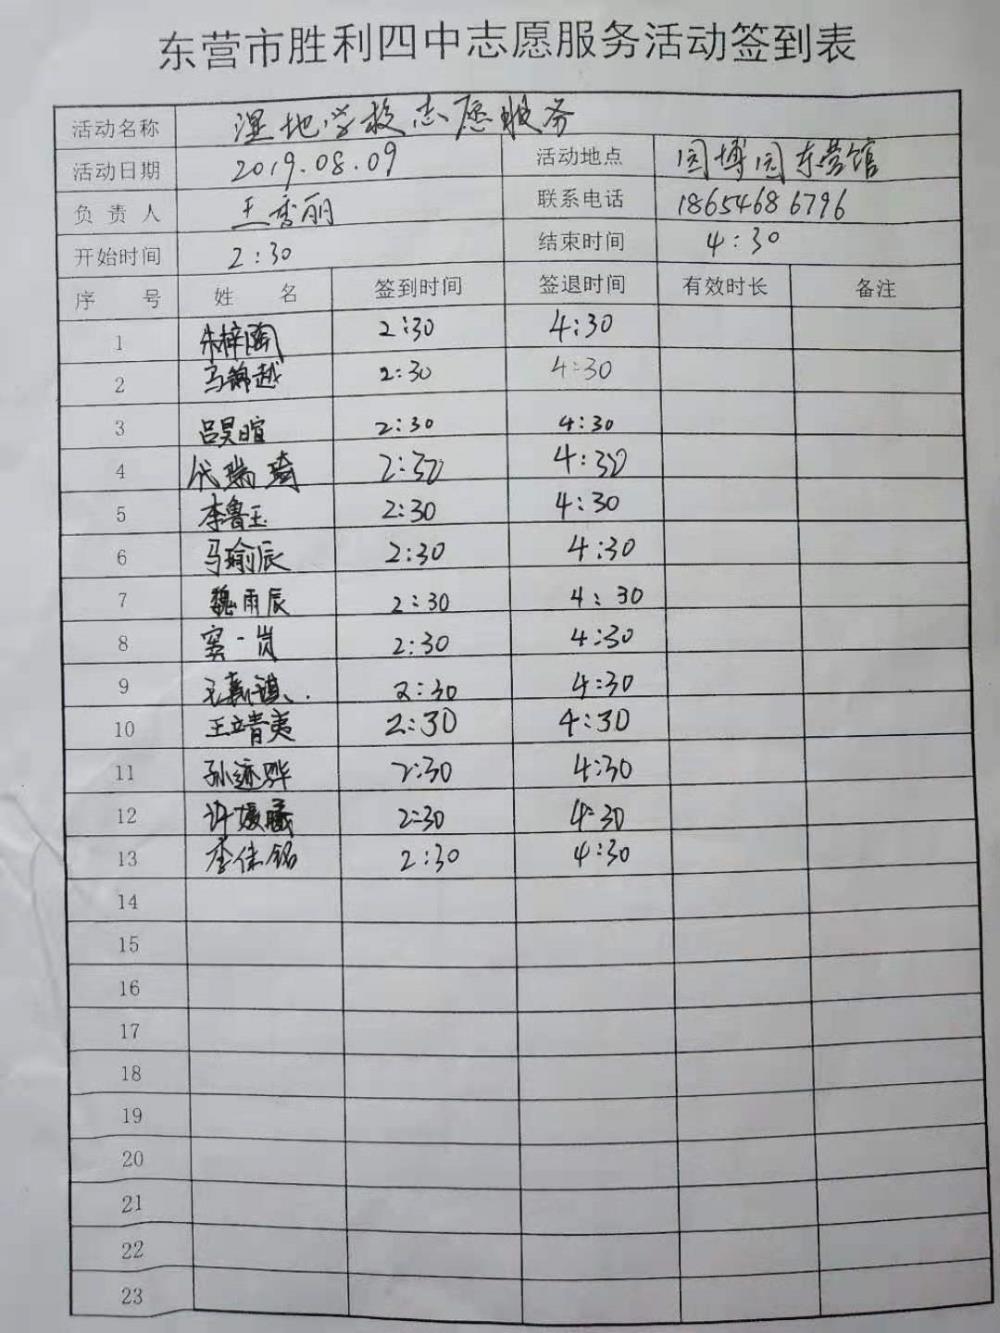 东营市胜利四中志愿服务活动签到表
活动名称 湿地学校志愿服务
活动日期 2019.08.09 活动地点 园博园东营馆
负责人 王秀丽 联系电话 18654686796
开始时间 2:30 结束时间 4:30
序号 姓名 签到时间 签退时间 有效时长 备注
1 朱梓陶 2:30 4:30
2 马锦越 2:30 4:30
3 吕昊暄 2:30 4:30
4 代瑞琦 2:30 4:30
5 李鲁玉 2:30 4:30
6 马瑜辰 2:30 4:30
7 魏雨辰 2:30 4:30
8 窦一岚 2:30 4:30
9 王嘉祺 2:30 4:30
10 王立青夷 2:30 4:30
11 孙迹骅 2:30 4:30
12 许 2:30 4:30
13 李佳铭 2:30 4:30
14
15
16
17
18
19
20
21
22
23